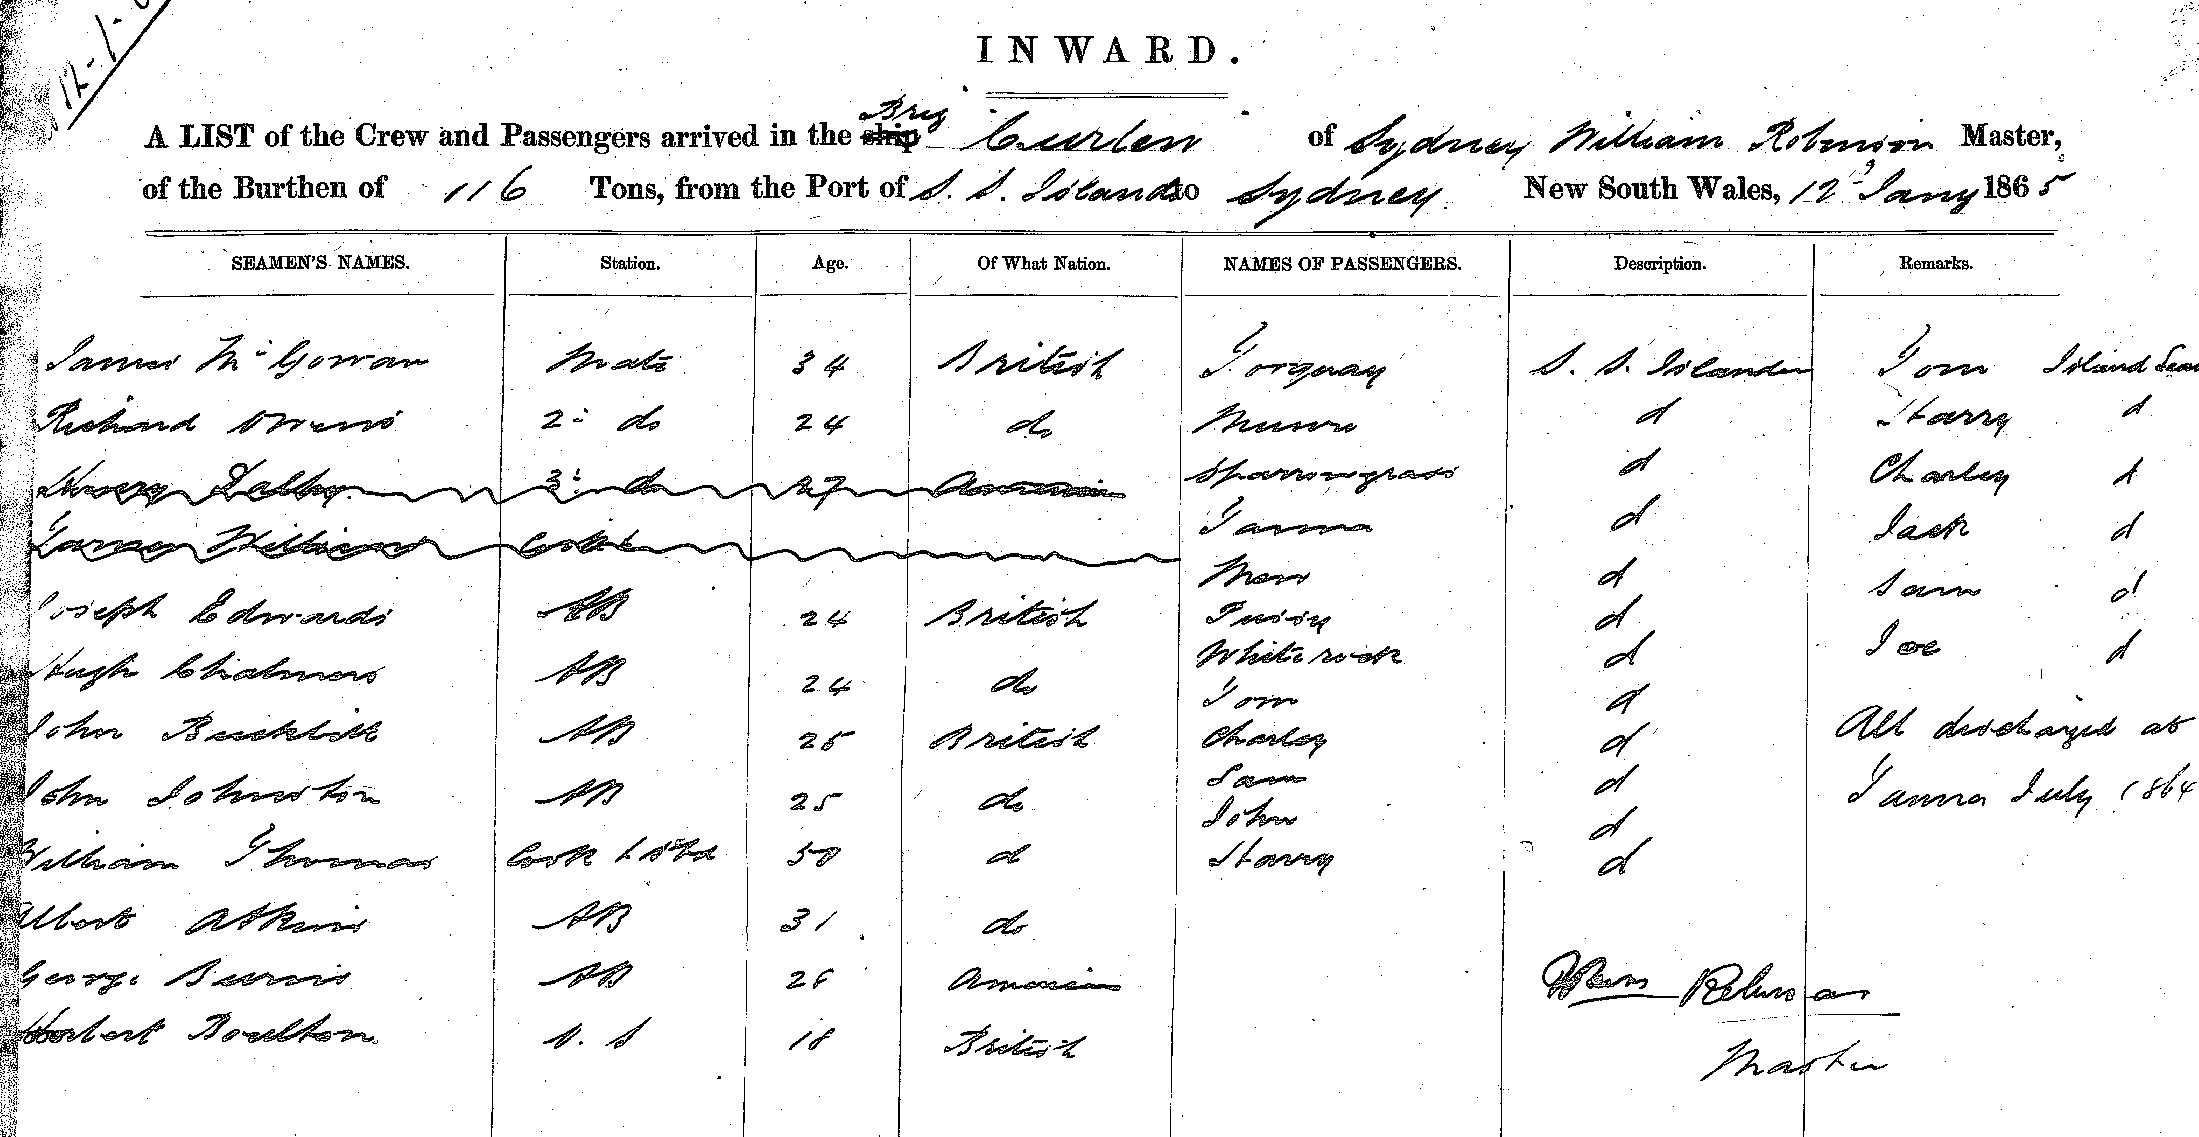 12-1-
INWARD.
A LIST of the Crew and Passengers arrived in the ship Brig Curlew of Sydney William Robinson Master,
of the Burthen of 116 Tons, from the Port of S. S. Islands to Sydney. New South Wales, 12 Jany 1865
SEAMEN'S NAMES. Station. Age. Of What Nation. NAMES OF PASSENGERS. Description. Remarks.
James McGowan Mate 34 British Torquay S. S. Islander Tom Island Sea
Richard Owens 2d do 24 do Munro d Harry d
3d do 27 American Sparrowgrass d Charley d
James Williams Cook Tanna d Jack d
Man d Sam d
Joseph Edwards AB 24 British Pussy d
White rock d Joe d
Hugh Chalmers AB 24 do Tom d
John AB 25 British Charley d All discharged at
Sam d
John Johnston AB 25 do John d Tanna July 1864
William Thomas Cook & Std 50 d Harry d
Albert Atkins AB 31 do
George Burns AB 26 American Wm Robinson
Herbert Boulton O. S 18 British Master